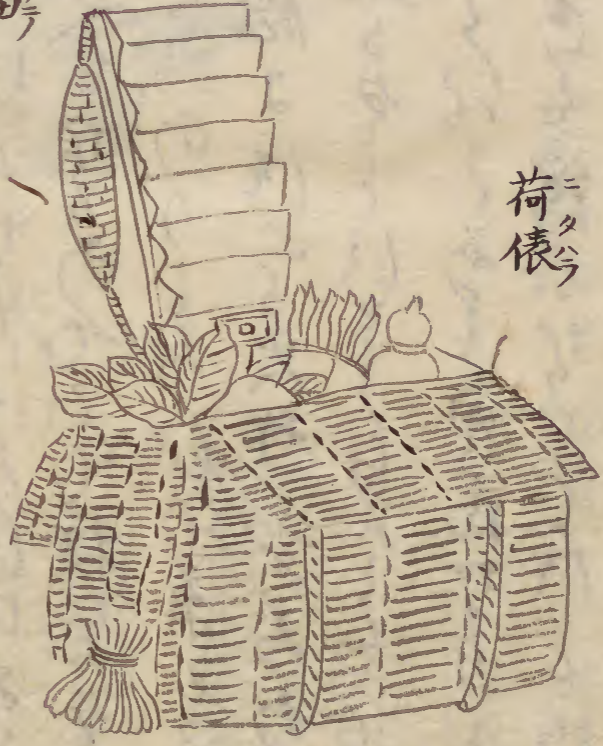 荷俵
ニタハラ